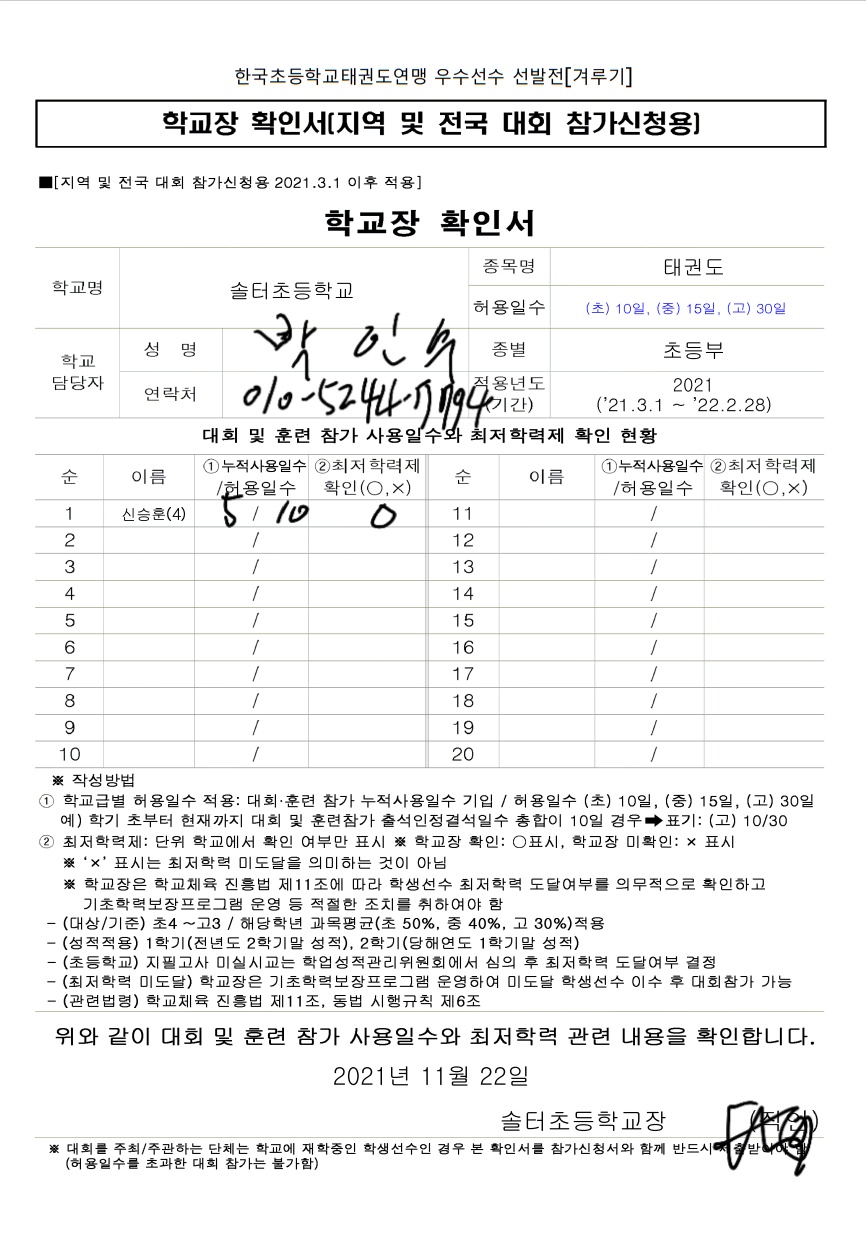 한국초등학교태권도연맹 우수선수 선발전[겨루기]
학교장 확인서(지역 및 전국 대회 참가신청용)
■[지역 및 전국 대회 참가신청용 2021.3.1 이후 적용]
학교장 확인서
학교명 솔터초등학교 종목명 태권도
허용일수 (초) 10일, (중) 15일, (고) 30일
학교 담당자 성 명 박 인 종별 초등부
연락처 적용년도 (기간) 2021 ('21.3.1 ~ '22.2.28)
대회 및 훈련 참가 사용일수와 최저학력제 확인 현황
순 이름 ①누적사용일수 /허용일수 ②최저학력제 확인(○,×) 순 이름 ①누적사용일수 /허용일수 ②최저학력제 확인(○,×)
1 신승훈(4) 5 / 10 O 11 /
2 / 12 /
3 / 13 /
4 / 14 /
5 / 15 /
6 / 16 /
7 / 17 /
8 / 18 /
9 / 19 /
10 / 20 /
※ 작성방법
① 학교급별 허용일수 적용: 대회·훈련 참가 누적사용일수 기입 / 허용일수 (초) 10일, (중) 15일, (고) 30일
예) 학기 초부터 현재까지 대회 및 훈련참가 출석인정결석일수 총합이 10일 경우➡표기: (고) 10/30
② 최저학력제: 단위 학교에서 확인 여부만 표시 ※ 학교장 확인: ○표시, 학교장 미확인: × 표시
※ '×' 표시는 최저학력 미도달을 의미하는 것이 아님
※ 학교장은 학교체육 진흥법 제11조에 따라 학생선수 최저학력 도달여부를 의무적으로 확인하고
기초학력보장프로그램 운영 등 적절한 조치를 취하여야 함
- (대상/기준) 초4 ~고3 / 해당학년 과목평균(초 50%, 중 40%, 고 30%)적용
- (성적적용) 1학기(전년도 2학기말 성적), 2학기(당해연도 1학기말 성적)
- (초등학교) 지필고사 미실시교는 학업성적관리위원회에서 심의 후 최저학력 도달여부 결정
- (최저학력 미도달) 학교장은 기초학력보장프로그램 운영하여 미도달 학생선수 이수 후 대회참가 가능
- (관련법령) 학교체육 진흥법 제11조, 동법 시행규칙 제6조
위와 같이 대회 및 훈련 참가 사용일수와 최저학력 관련 내용을 확인합니다.
2021년 11월 22일
솔터초등학교장 (직인)
※ 대회를 주최/주관하는 단체는 학교에 재학중인 학생선수인 경우 본 확인서를 참가신청서와 함께 반드시 제출받아야 함
(허용일수를 초과한 대회 참가는 불가함)